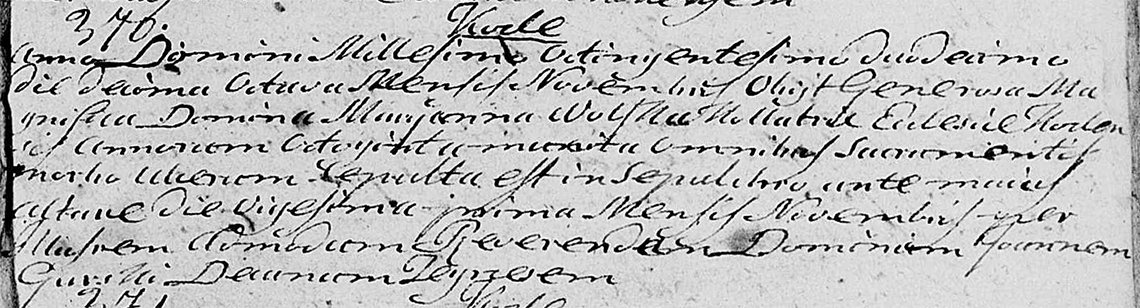 370. Kode
Anno Domini Millesimo Octingentesimo duodecimo
die decima Octava Mensis Novembris Obijt Generosa Ma
gnifica Domina Maryanna Wolska Kollatrix Eclesiæ Koden
sis Annorum Octoginta munita omnibus Sacramentis
morbo Sepulta est in Sepulchro ante maius
altare die Vigesima prima Mensis Novembris per
Illustrem Admodum Reverendum Dominum Joannem
Decanum
271 Kode